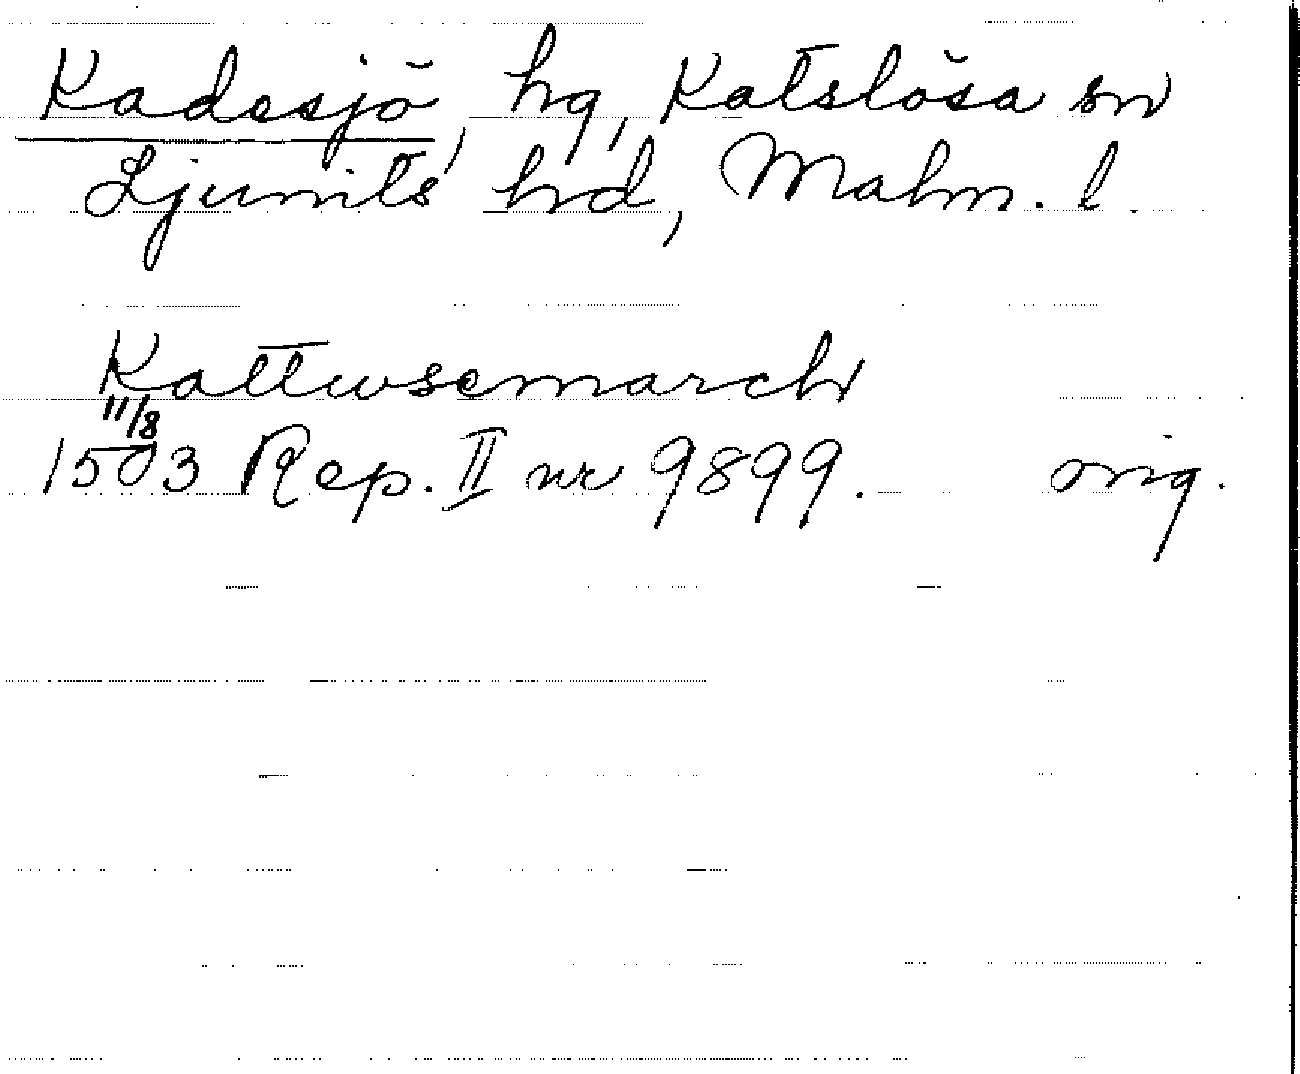 Kadesjö, hg, Katslösa sn
Ljunits hd, Malm. l.
Kattwsemarch
11/8
1503 Rep. II nr 9899. orig.